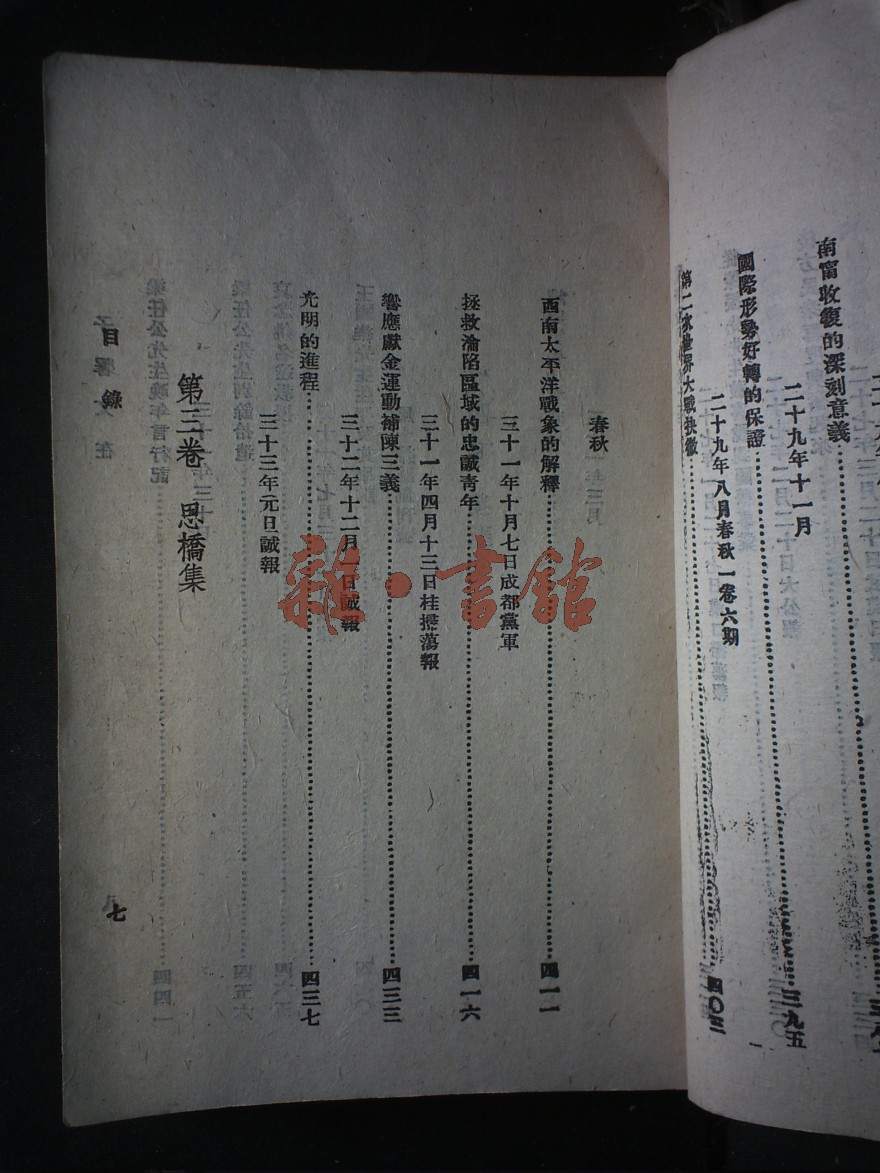 南甯收復的深刻意義
二十九年十一月
國際形勢好轉的保證……三九五
二十九年八月春秋一卷六期
第二次世界大戰抉微……四〇三
春秋
西南太平洋戰象的解釋……四一一
三十一年十月七日成都黨軍
拯救淪陷區域的忠誠青年……四一六
三十一年四月十三日桂掃蕩報
響應獻金運動補陳三義……四三三
三十二年十二月一日誠報
光明的進程……四三七
三十三年元旦誠報
第三卷 思橋集
目錄
七
雜·書館